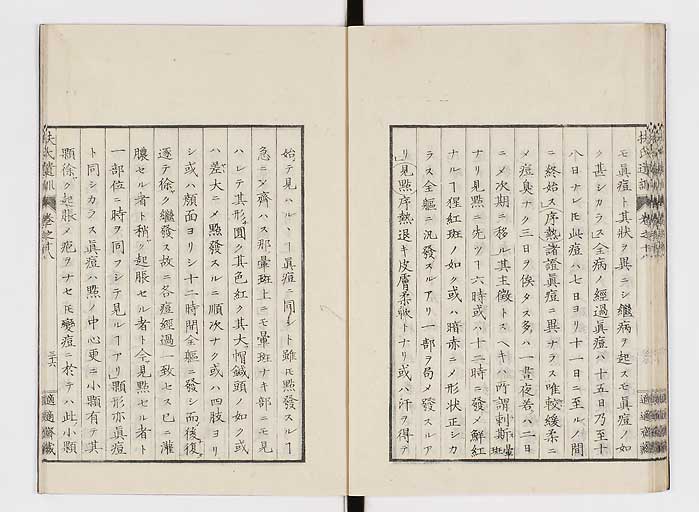 モ眞痘ト其狀ヲ異ニシ繼病ヲ起スモ眞痘ノ如
ク甚シカラス全病ノ經過眞痘ハ十五日乃至十
八日ナレ𪜈此痘ハ七日ヨリ十一日ニ至ルノ間
ニ終始ス序熱諸證眞痘ニ異ナラス唯較緩柔ニ
メ痘臭ナク三日ヲ俟タス多ハ一晝夜若ハ二日
ニメ次期ニ移ル其主徴トスヘキハ所謂刺斯暈斑
ナリ見點ニ先ツヿ六時或ハ十二時ニ發メ鮮紅
ナルヿ猩紅斑ノ如ク或ハ暗赤ニメ形狀正シカ
ラス全軀ニ汎發スルアリ一部ヲ局メ發スルア
リ見點序熱退キ皮膚柔軟トナリ或ハ汗ヲ得テ
扶氏遺訓 卷之十八
始テ見ハル、ヿ眞痘ト同シト雖𪜈點發スルヿ
急ニメ齊ハス那暈斑上ニモ暈斑ナキ部ニモ見
ハレテ其形圓ク其色紅ク其大帽鍼頭ノ如ク或
ハ差大ニメ點發スルニ順次ナク或ハ四肢ヨリ
シ或ハ顔面ヨリシ十二時間全軀ニ發シ而後復
逐テ徐ク繼發ス故ニ各痘經過一致セス已ニ灌
膿セル者ト稍ク起脹セル者ト今見點セル者ト
一部位ニ時ヲ同フシテ見ルヿアリ顆形亦眞痘
ト同シカラス眞痘ハ點ノ中心更ニ小顆有テ其
顆徐ク起脹メ疱ヲナセ𪜈變痘ニ於テハ此小顆
扶氏遺訓 卷之十八
三十六
適適齋藏